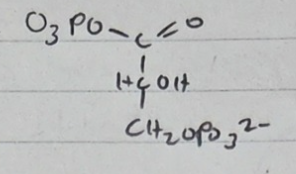 O₃PO-C=O
HCOH
CH₂OPO₃²⁻